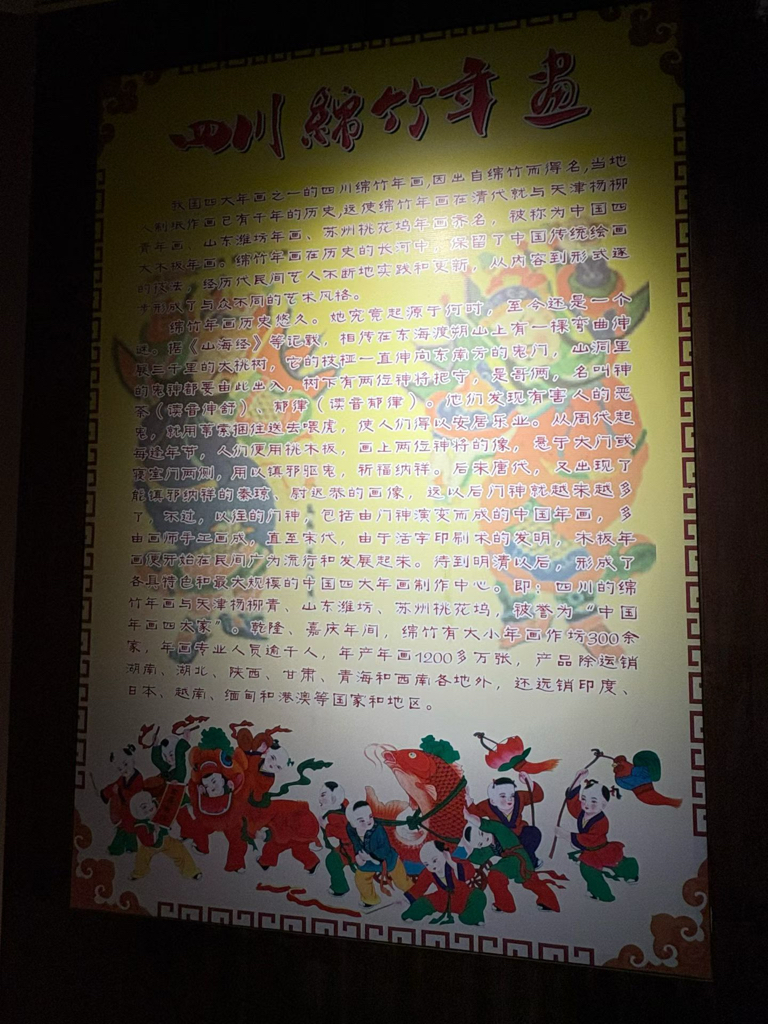 四川绵竹年画
我国四大年画之一的四川绵竹年画,因出自绵竹而得名,当地
人制纸作画已有千年的历史,远使绵竹年画在清代就与天津杨柳
青年画、山东潍坊年画、苏州桃花坞年画齐名，被称为中国四
大木板年画。绵竹年画在历史的长河中，保留了中国传统绘画
的技法，经历代民间艺人不断地实践和更新，从内容到形式逐
步形成了与众不同的艺术风格。
绵竹年画历史悠久。她究竟起源于何时，至今还是一个
谜。据《山海经》等记载，相传在东海渡朔山上有一棵弯曲伸
展三千里的大桃树，它的枝桠一直伸向东南方的鬼门，山洞里
的鬼神都要由此出入，树下有两位神将把守，是哥俩，名叫神
荼（读音伸舒）、郁律（读音郁律）。他们发现有害人的恶
鬼，就用苇索捆往送去喂虎，使人们得以安居乐业。从周代起
每逢年节，人们便用桃木板，画上两位神将的像，悬于大门或
寝室门两侧，用以镇邪驱鬼，祈福纳祥。后来唐代，又出现了
能镇邪纳祥的秦琼、尉迟恭的画像，这以后门神就越来越多
了，不过，以往的门神，包括由门神演变而成的中国年画，多
由画师手工画成，直至宋代，由于活字印刷术的发明，木板年
画便开始在民间广为流行和发展起来。待到明清以后，形成了
各具特色和最大规模的中国四大年画制作中心。即：四川的绵
竹年画与天津杨柳青、山东潍坊、苏州桃花坞，被誉为“中国
年画四大家”。乾隆、嘉庆年间，绵竹有大小年画作坊300余
家，年画专业人员逾千人，年产年画1200多万张，产品除运销
湖南、湖北、陕西、甘肃、青海和西南各地外，还远销印度、
日本、越南、缅甸和港澳等国家和地区。